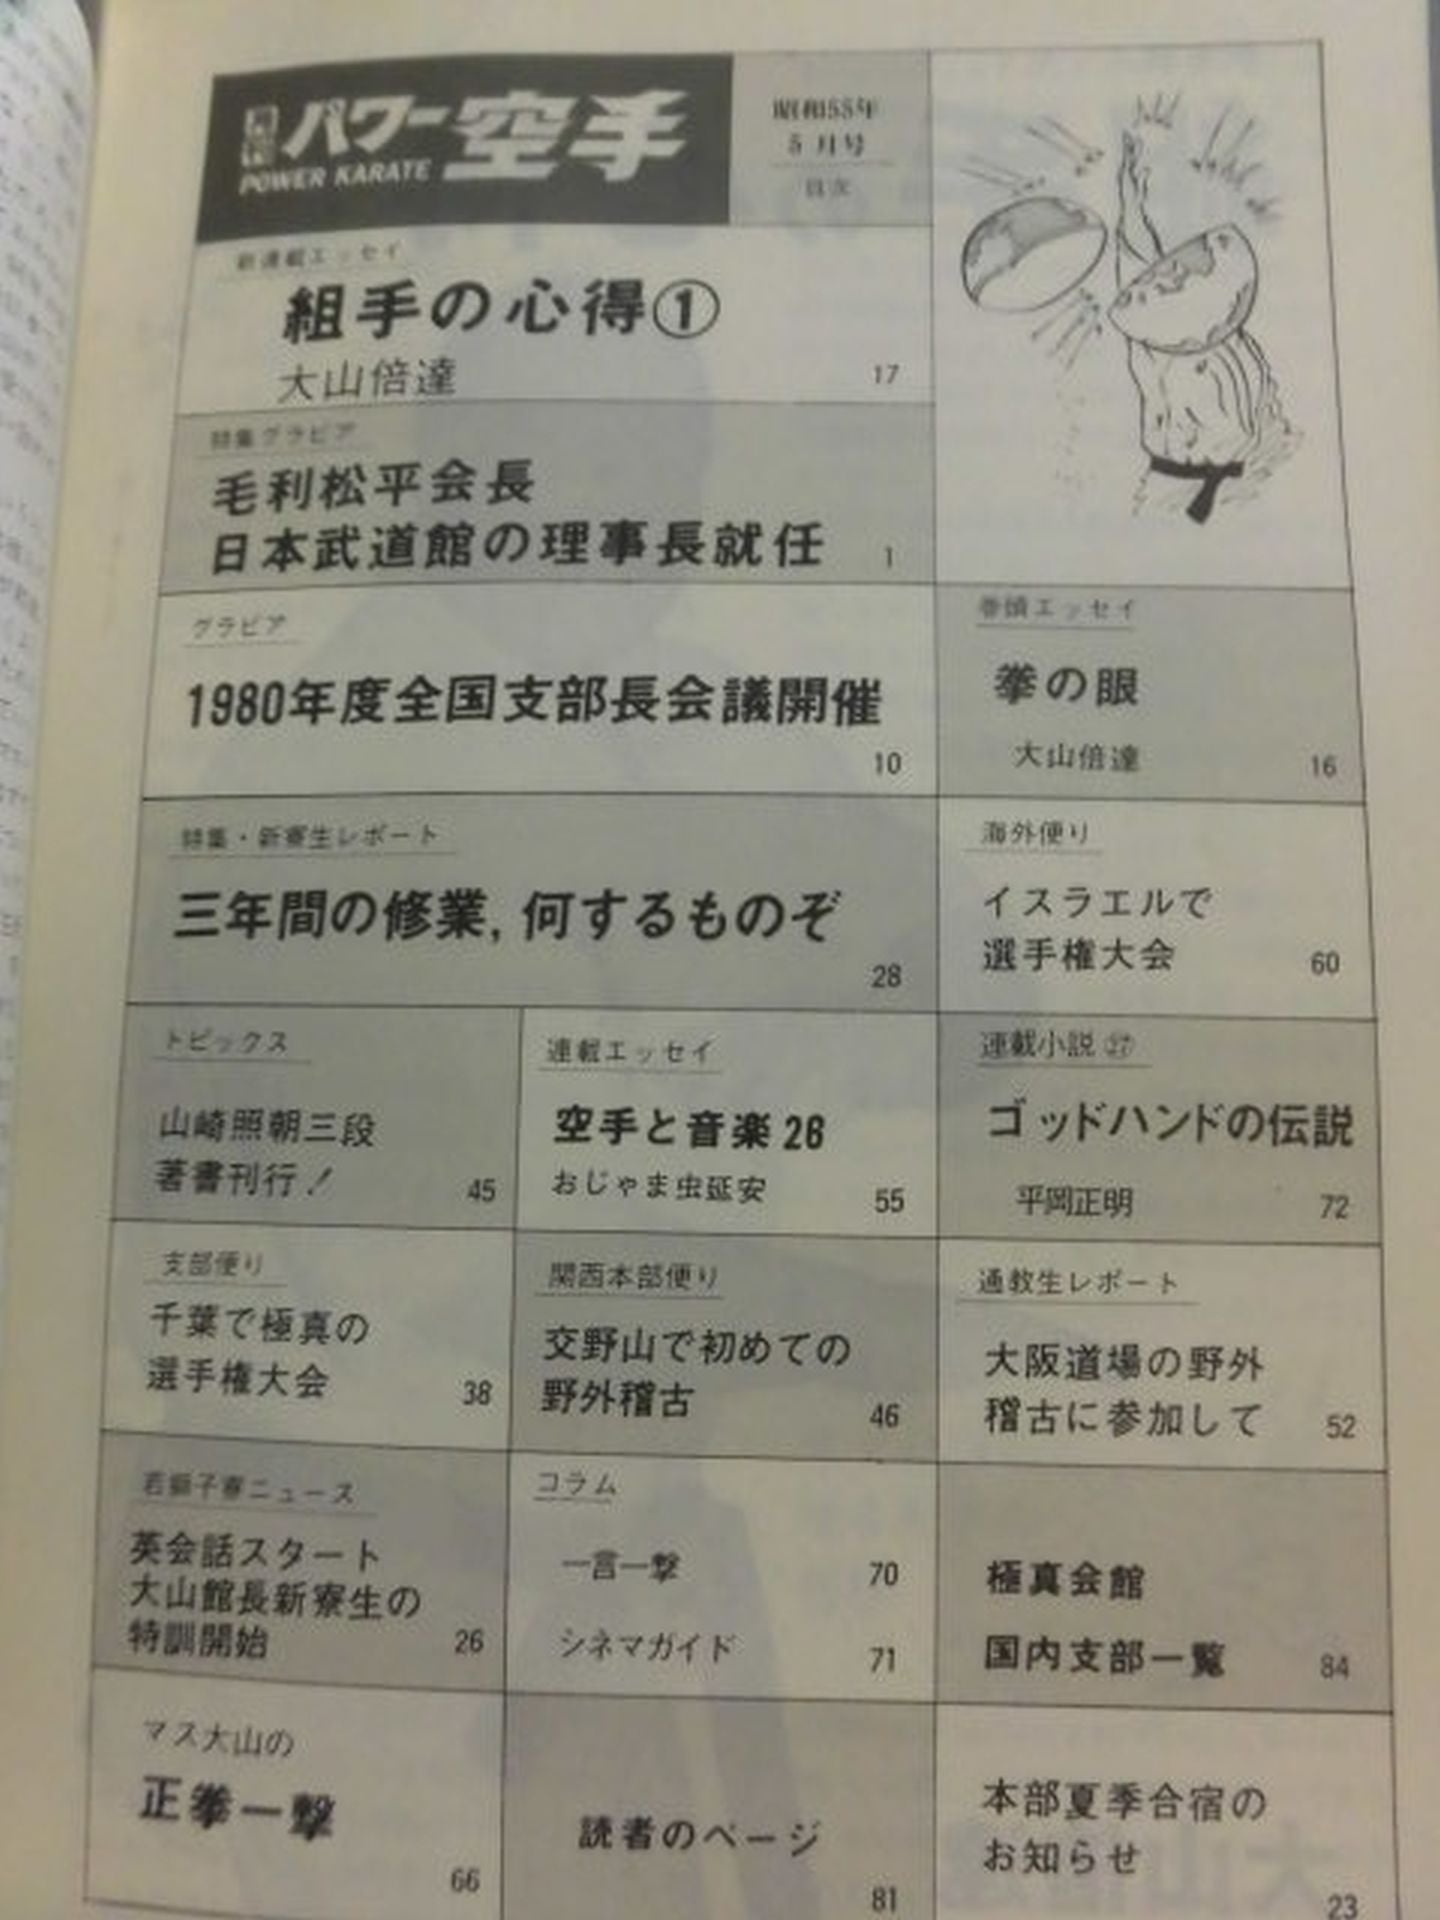 月刊 パワー空手
POWER KARATE
昭和55年
5月号
目次
新連載エッセイ
組手の心得①
大山倍達
17
特集グラビア
毛利松平会長
日本武道館の理事長就任
1
グラビア
1980年度全国支部長会議開催
10
巻頭エッセイ
拳の眼
大山倍達
16
特集・新寮生レポート
三年間の修業,何するものぞ
28
海外便り
イスラエルで
選手権大会
60
トピックス
山崎照朝三段
著書刊行!
45
連載エッセイ
空手と音楽26
おじゃま虫延安
55
連載小説㉗
ゴッドハンドの伝説
平岡正明
72
支部便り
千葉で極真の
選手権大会
38
関西本部便り
交野山で初めての
野外稽古
46
通教生レポート
大阪道場の野外
稽古に参加して
52
若獅子寮ニュース
英会話スタート
大山館長新寮生の
特訓開始
26
コラム
一言一撃
70
シネマガイド
71
極真会館
国内支部一覧
84
マス大山の
正拳一撃
66
読者のページ
81
本部夏季合宿の
お知らせ
23